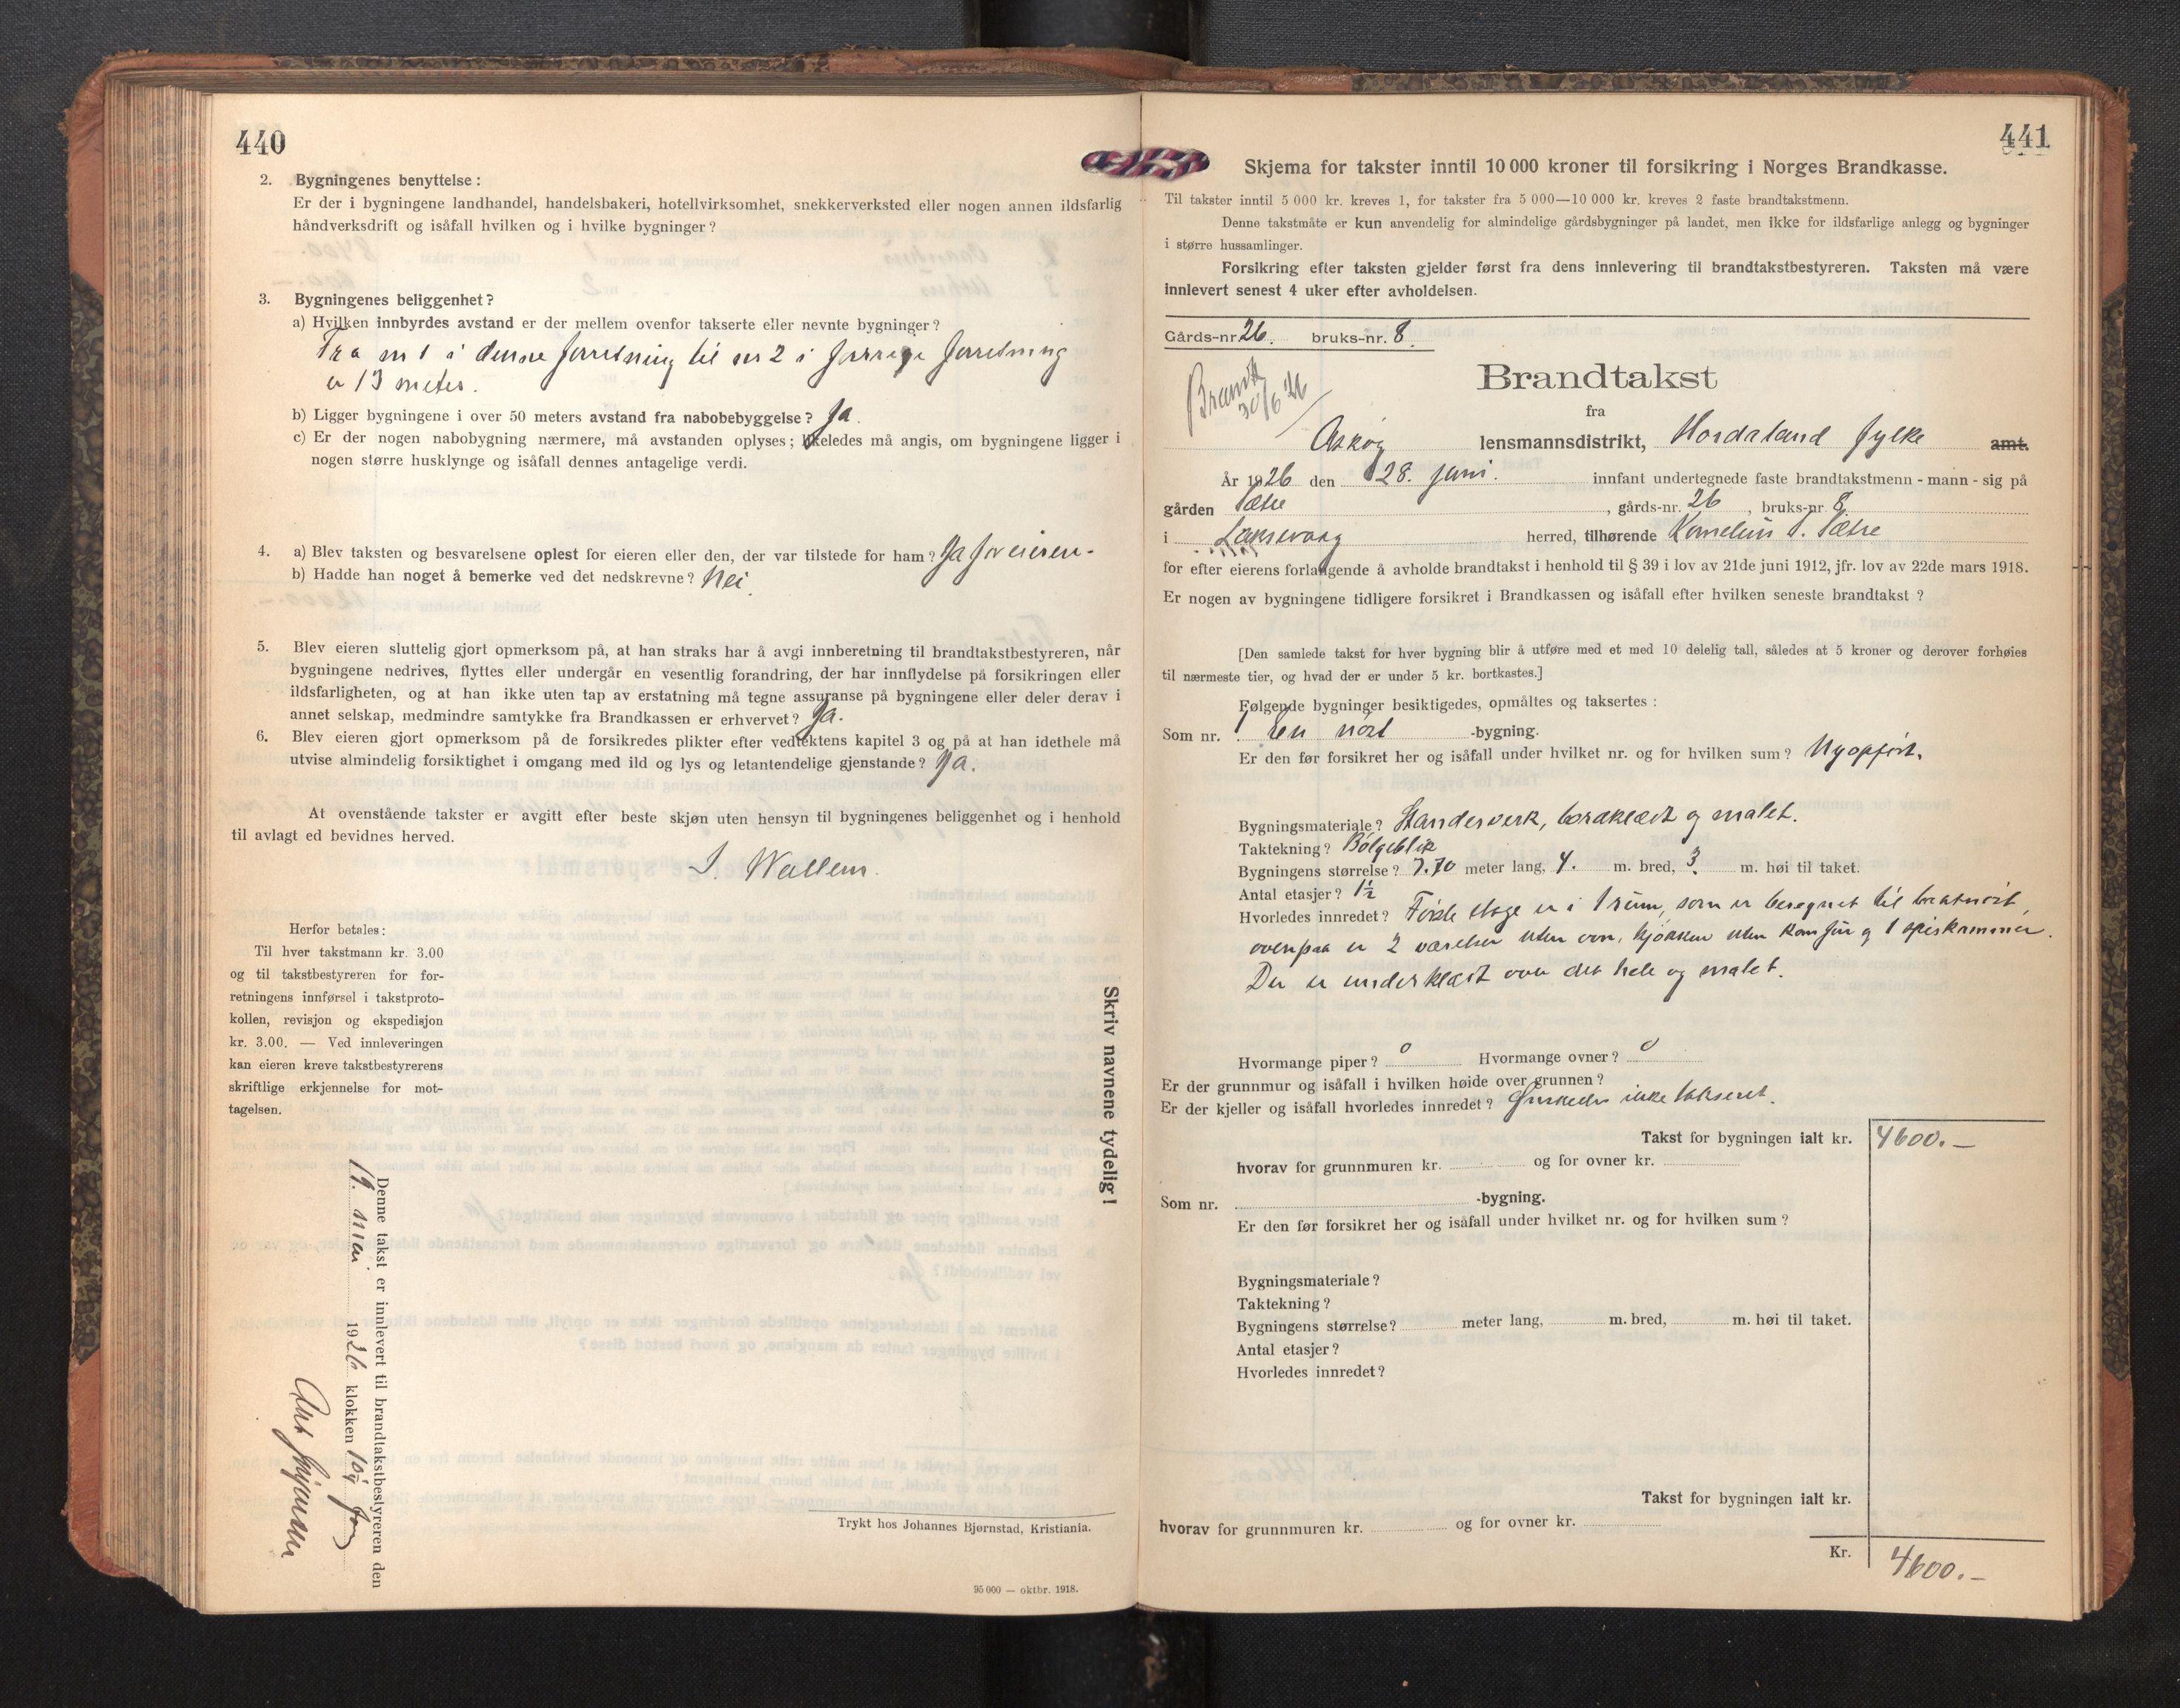 440
2. Bygningenes benyttelse:
Er der i bygningene landhandel, handelsbakeri, hotellvirksomhet, snekkerverksted eller nogen annen ildsfarlig
håndverksdrift og isåfall hvilken og i hvilke bygninger?
3. Bygningenes beliggenhet?
a) Hvilken innbyrdes avstand er der mellem ovenfor takserte eller nevnte bygninger?
Fra nr 1 i denne forretning til nr 2 i forrige forretning
er 13 meter.
b) Ligger bygningene i over 50 meters avstand fra nabobebyggelse? Ja.
c) Er der nogen nabobygning nærmere, må avstanden oplyses; likeledes må angis, om bygningene ligger i
nogen større husklynge og isåfall dennes antagelige verdi.
4. a) Blev taksten og besvarelsene oplest for eieren eller den, der var tilstede for ham? Ja for eieren-
b) Hadde han noget å bemerke ved det nedskrevne? Nei.
5. Blev eieren sluttelig gjort opmerksom på, at han straks har å avgi innberetning til brandtakstbestyreren, når
bygningene nedrives, flyttes eller undergår en vesentlig forandring, der har innflydelse på forsikringen eller
ildsfarligheten, og at han ikke uten tap av erstatning må tegne assuranse på bygningene eller deler derav i
annet selskap, medmindre samtykke fra Brandkassen er erhvervet? Ja.
6. Blev eieren gjort opmerksom på de forsikredes plikter efter vedtektens kapitel 3 og på at han idethele må
utvise almindelig forsiktighet i omgang med ild og lys og letantendelige gjenstande? Ja.
At ovenstående takster er avgitt efter beste skjøn uten hensyn til bygningenes beliggenhet og i henhold
til avlagt ed bevidnes herved.
J. Wallem.
Herfor betales:
Til hver takstmann kr. 3.00
og til takstbestyreren for for-
retningens innførsel i takstproto-
kollen, revisjon og ekspedisjon
kr. 3.00. — Ved innleveringen
kan eieren kreve takstbestyrerens
skriftlige erkjennelse for mot-
tagelsen.
Skriv navnene tydelig!
Denne takst er innlevert til brandtakstbestyreren den
19. mai 1926 klokken
Trykt hos Johannes Bjørnstad, Kristiania.
95 000 — oktbr. 1918.
441
Skjema for takster inntil 10 000 kroner til forsikring i Norges Brandkasse.
Til takster inntil 5 000 kr. kreves 1, for takster fra 5 000—10 000 kr. kreves 2 faste brandtakstmenn.
Denne takstmåte er kun anvendelig for almindelige gårdsbygninger på landet, men ikke for ildsfarlige anlegg og bygninger
i større hussamlinger.
Forsikring efter taksten gjelder først fra dens innlevering til brandtakstbestyreren. Taksten må være
innlevert senest 4 uker efter avholdelsen.
Gårds-nr. 26. bruks-nr. 8.
30/6 26
Brandtakst
fra
Askøy lensmannsdistrikt, Hordaland fylke amt.
År 1926 den 28. juni. innfant undertegnede faste brandtakstmenn - mann - sig på
gården Sætre, gårds-nr. 26, bruks-nr. 8
i Laksevaag herred, tilhørende Kornelius S. Sætre
for efter eierens forlangende å avholde brandtakst i henhold til § 39 i lov av 21de juni 1912, jfr. lov av 22de mars 1918.
Er nogen av bygningene tidligere forsikret i Brandkassen og isåfall efter hvilken seneste brandtakst?
[Den samlede takst for hver bygning blir å utføre med et med 10 delelig tall, således at 5 kroner og derover forhøies
til nærmeste tier, og hvad der er under 5 kr. bortkastes.]
Følgende bygninger besiktigedes, opmåltes og taksertes:
Som nr. 1 En nøst -bygning.
Er den før forsikret her og isåfall under hvilket nr. og for hvilken sum? Nyopført.
Bygningsmateriale? Standerverk, bordklædt og malet.
Taktekning? Bølgeblik
Bygningens størrelse? 7.70 meter lang, 4. m. bred, 3. m. høi til taket.
Antal etasjer? 1½
Hvorledes innredet? Første etage er i 1 rum, som er beregnet til baatnøst,
ovenpaa er 2 værelser uten ovn, kjøkken uten komfur og 1 spiskammer.
Der er underklædt over det hele og malet.
Hvormange piper? 0 Hvormange ovner? 0
Er der grunnmur og isåfall i hvilken høide over grunnen?
Er der kjeller og isåfall hvorledes innredet? ikke takseret.
Takst for bygningen ialt kr. 4600.—
hvorav for grunnmuren kr. og for ovner kr.
Som nr. -bygning.
Er den før forsikret her og isåfall under hvilket nr. og for hvilken sum?
Bygningsmateriale?
Taktekning?
Bygningens størrelse? meter lang, m. bred, m. høi til taket.
Antal etasjer?
Hvorledes innredet?
Takst for bygningen ialt kr.
hvorav for grunnmuren kr. og for ovner kr.
Kr. 4600.—